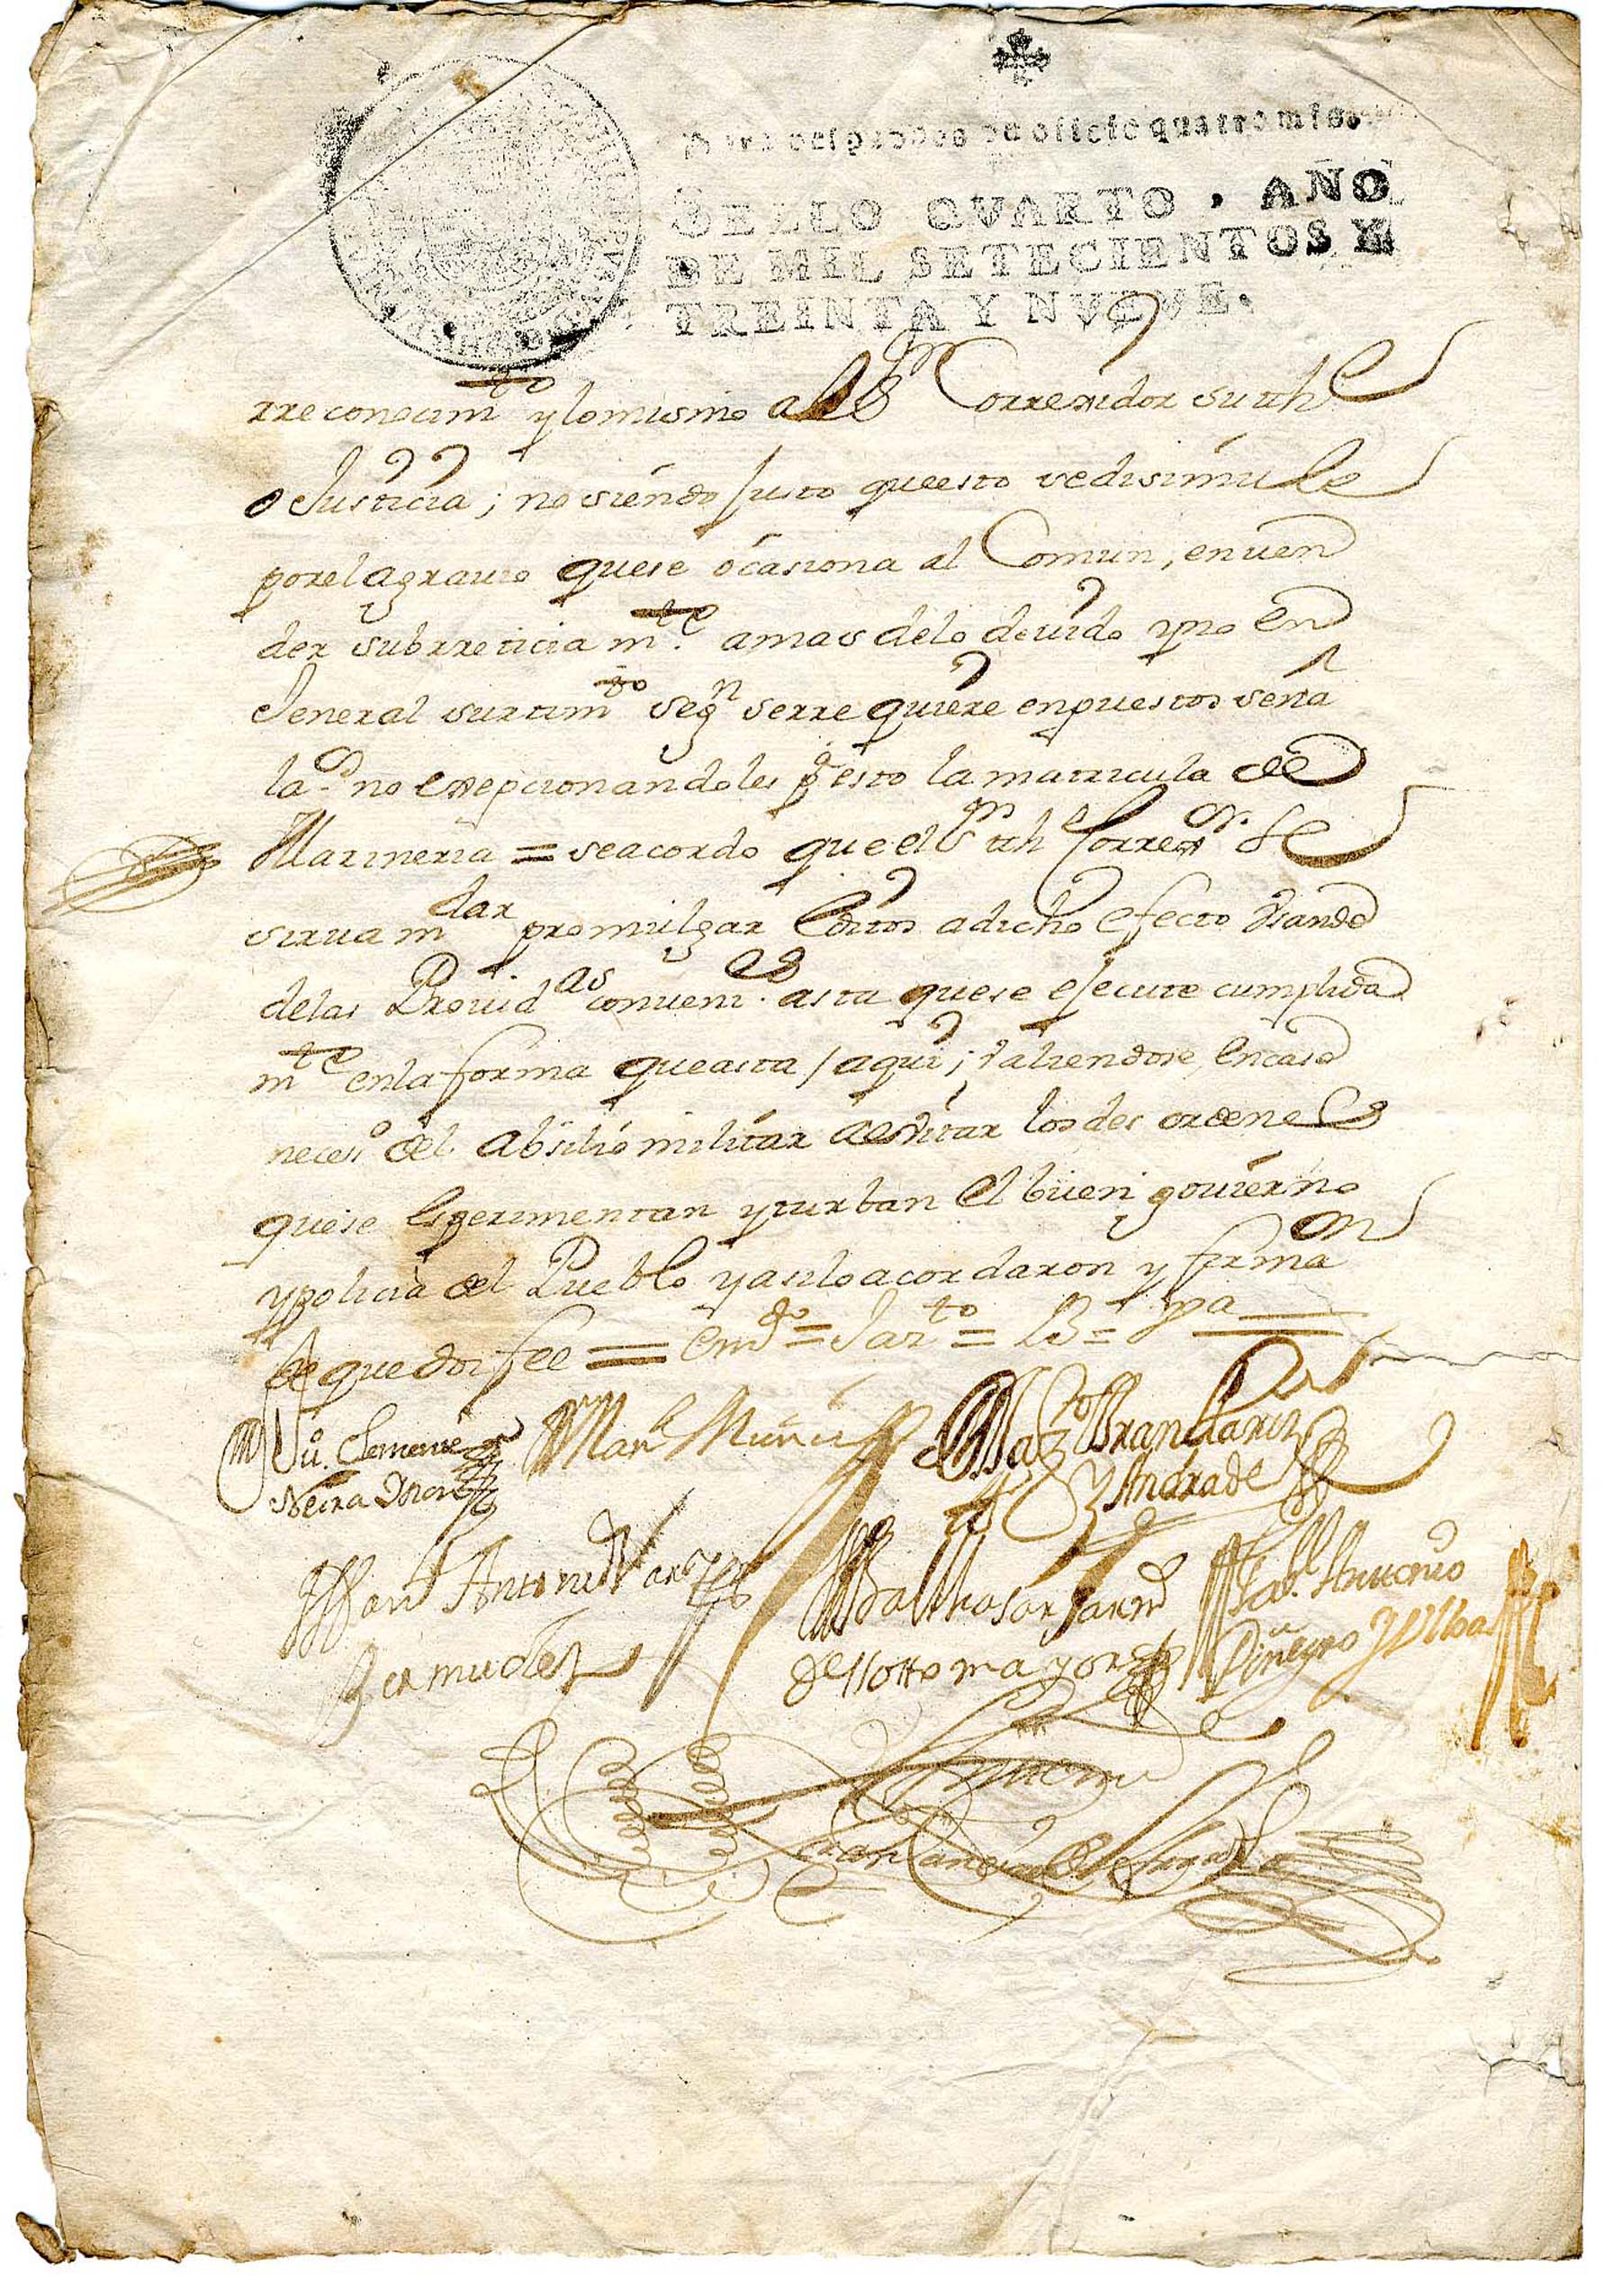 para despachos de oficio quatro mrs.
SELLO QVARTO, AÑO
DE MIL SETECIENTOS Y
TREINTA Y NVEVE.
rreconocimto y lo mismo al Sr Correxidor su the
o Justicia; no siendo Justo que esto se disimule
por el agravio que se ocasiona al Comun, en ven
der subrreticiamte. a mas de lo devido y no en
Jeneral surtimto segn se rrequiere en puestos seña
lados no exepcionandoles pa esto la matricula de
Marineria = se acordo que el Sr the Correxor. se
sirva mdar promulgar Edictos a dicho efecto Usando
de las Provid.as convenies. asta que se ejecute cumplida
mte en la forma que asta aqui; Valiendose, en caso
neceso del Absilio militar a evitar los desordenes
que se Esperimentan y turban el buen govierno
y policia del Pueblo y asi lo acordaron y firman
de que doi fee = Emdo =
Ju. Clemente
Neira
Manl Muñiz
Balthasar
y Andrade
Juan Antonio Varela
Bermudez
Balthasar Jacinto
de Sottomayor
Gabl. Antonio
Piñeyro y Ulloa
Ante mi